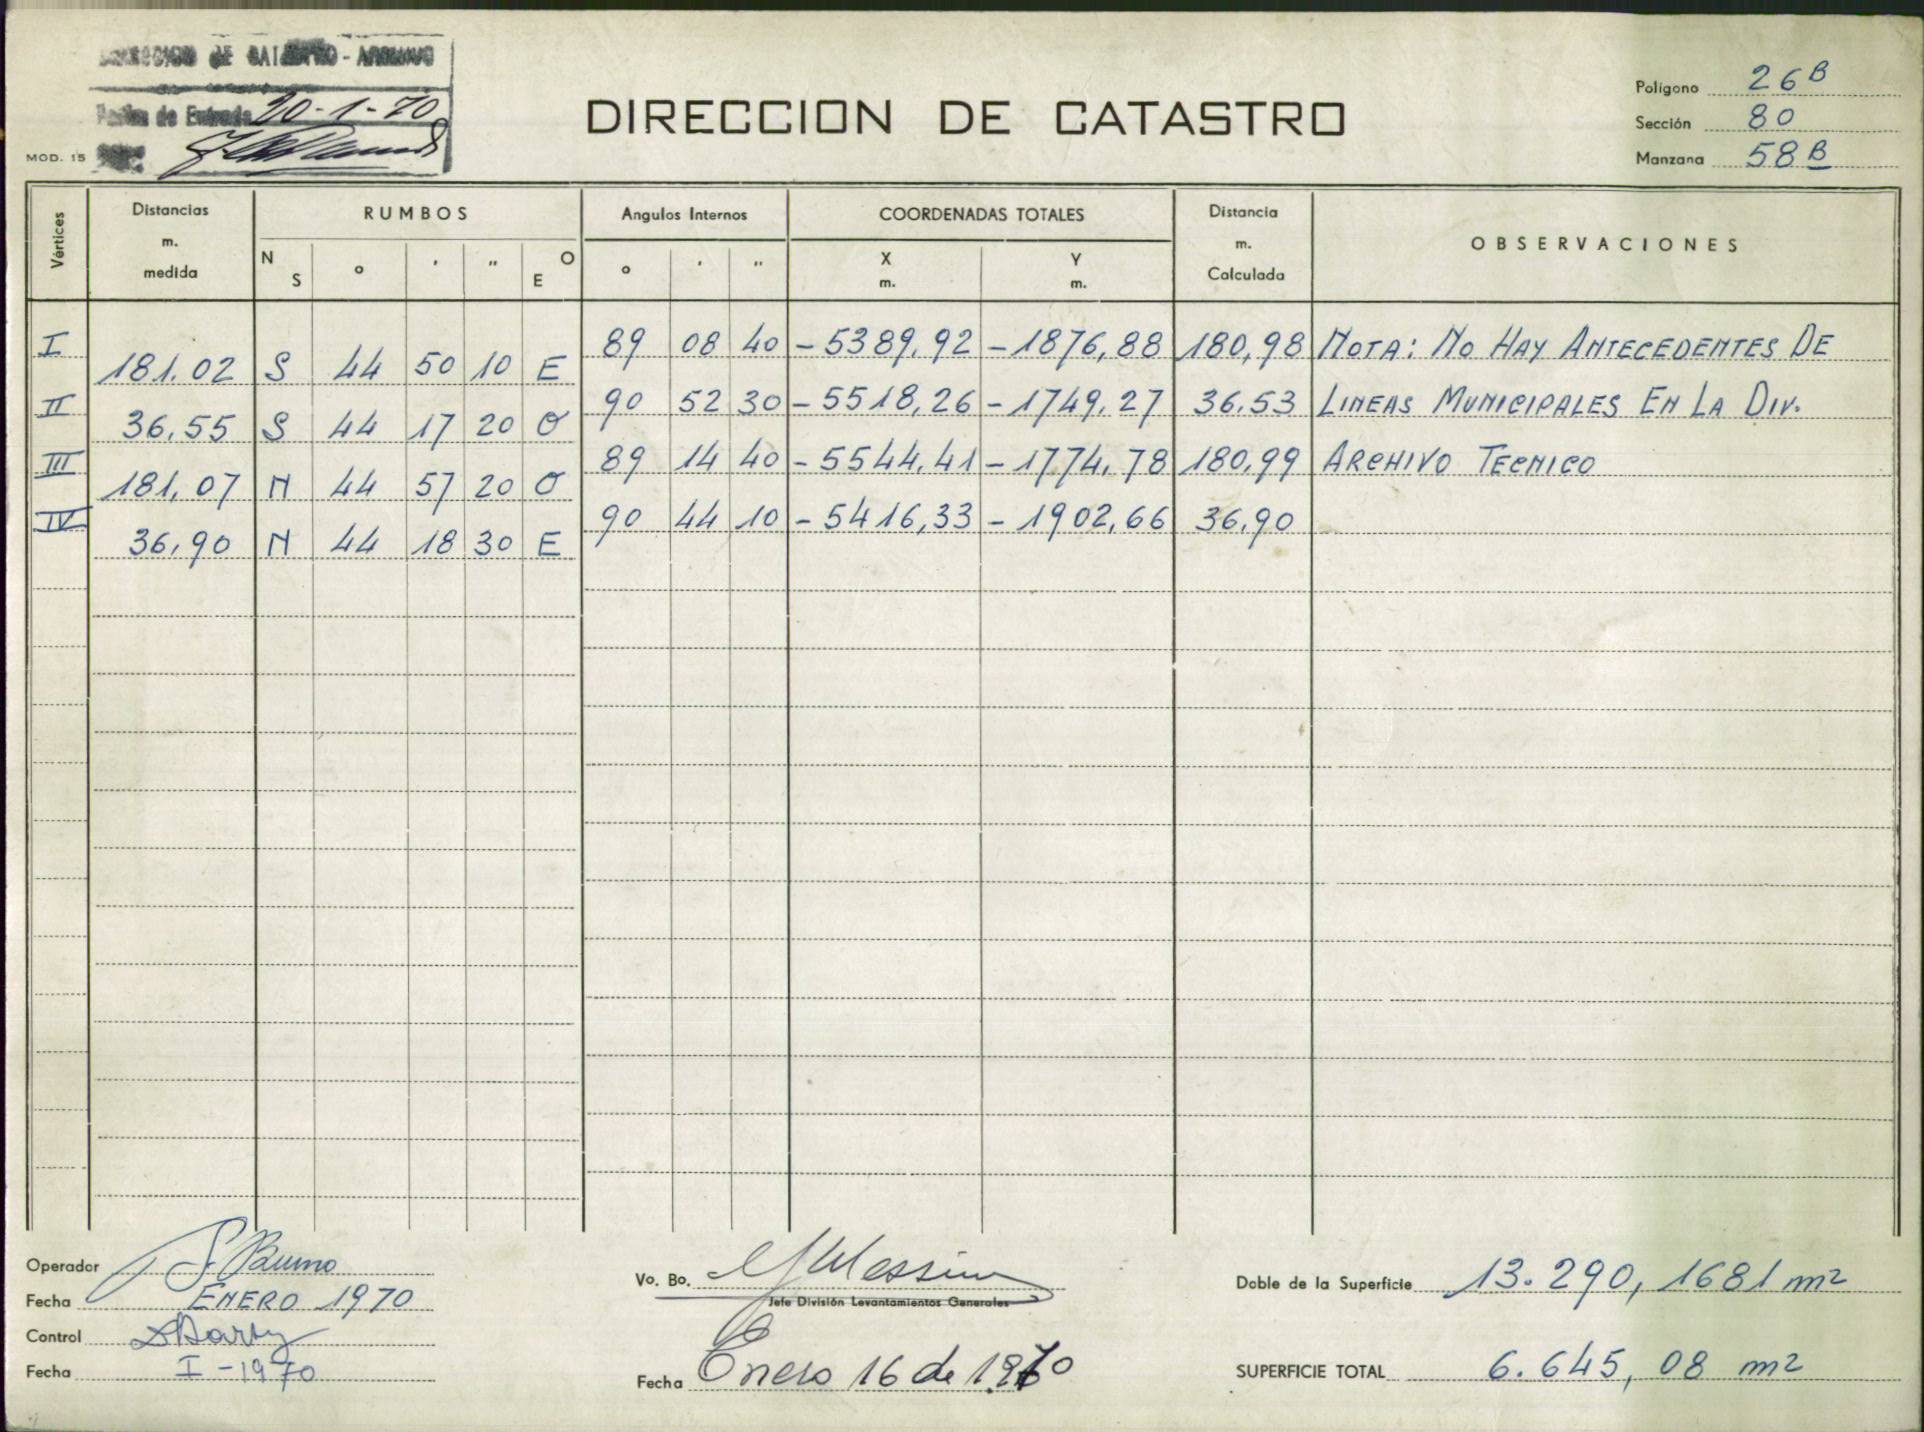 DIRECCION DE CATASTRO - ARCHIVO
Fecha de Entrada 20-1-70
MOD. 15
DIRECCION DE CATASTRO
Polígono 26 B
Sección 80
Manzana 58 B
Vértices Distancias m. medida RUMBOS Angulos Internos COORDENADAS TOTALES Distancia m. Calculada OBSERVACIONES
N S ° ' " O E ° ' " X m. Y m.
I 89 08 40 -5389,92 -1876,88 180,98 NOTA: NO HAY ANTECEDENTES DE
181.02 S 44 50 10 E
II 90 52 30 -5518,26 -1749.27 36.53 LINEAS MUNICIPALES EN LA DIV.
36.55 S 44 17 20 O
III 89 14 40 -5544,41 -1774,78 180,99 ARCHIVO TECNICO
181,07 N 44 57 20 O
IV 90 44 10 -5416,33 -1902,66 36,90
36,90 N 44 18 30 E
Operador S. Bruno
Fecha ENERO 1970
Control
Fecha I-1970
Vo. Bo.
Jefe División Levantamientos Generales
Fecha Enero 16 de 1970
Doble de la Superficie 13.290,1681 m2
SUPERFICIE TOTAL 6.645,08 m2